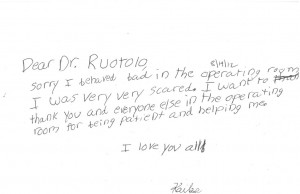 Dear Dr. Ruotolo
8/9/12
sorry I behaved bad in the operating room
I was very very scared. I want to
thank you and everyone else in the operating
room for being patient and helping me.
I love you all!